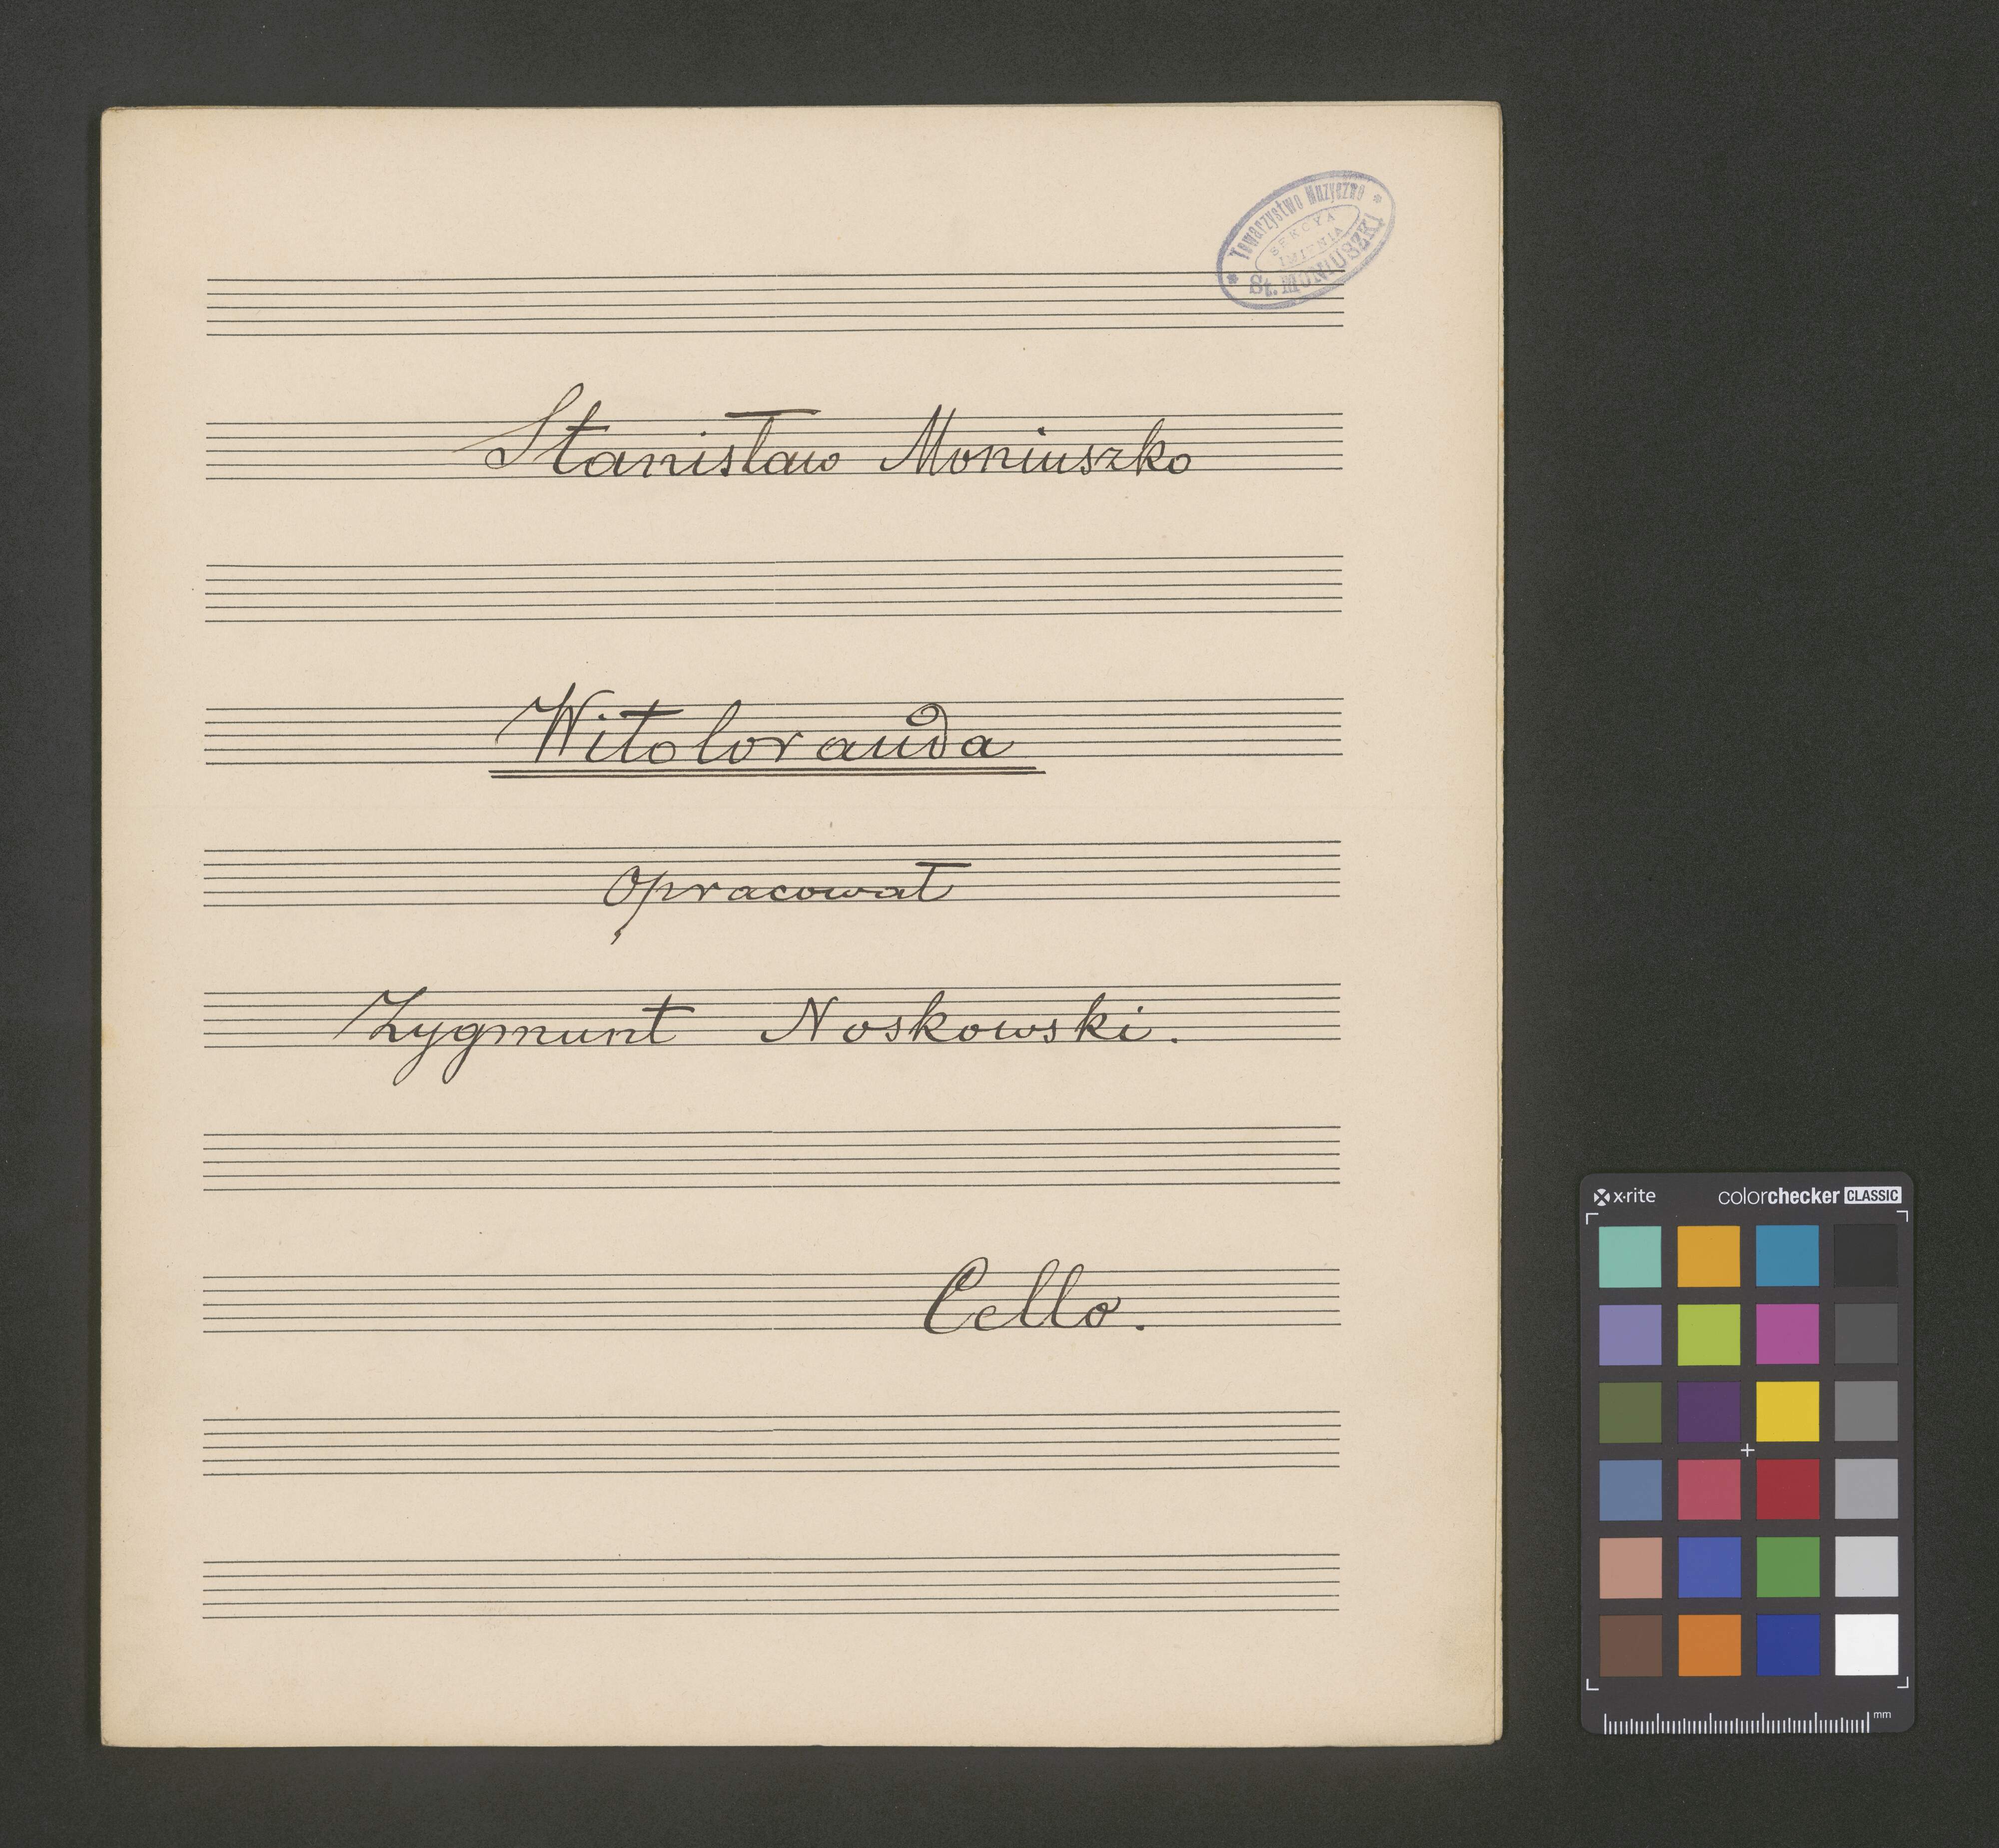 Towarzystwo Muzyczne
SEKCYA
IMIENIA
St. MONIUSZKI
Stanisław Moniuszko
Witolorauda
Opracował
Zygmunt Noskowski.
Cello.
x·rite colorchecker CLASSIC
mm